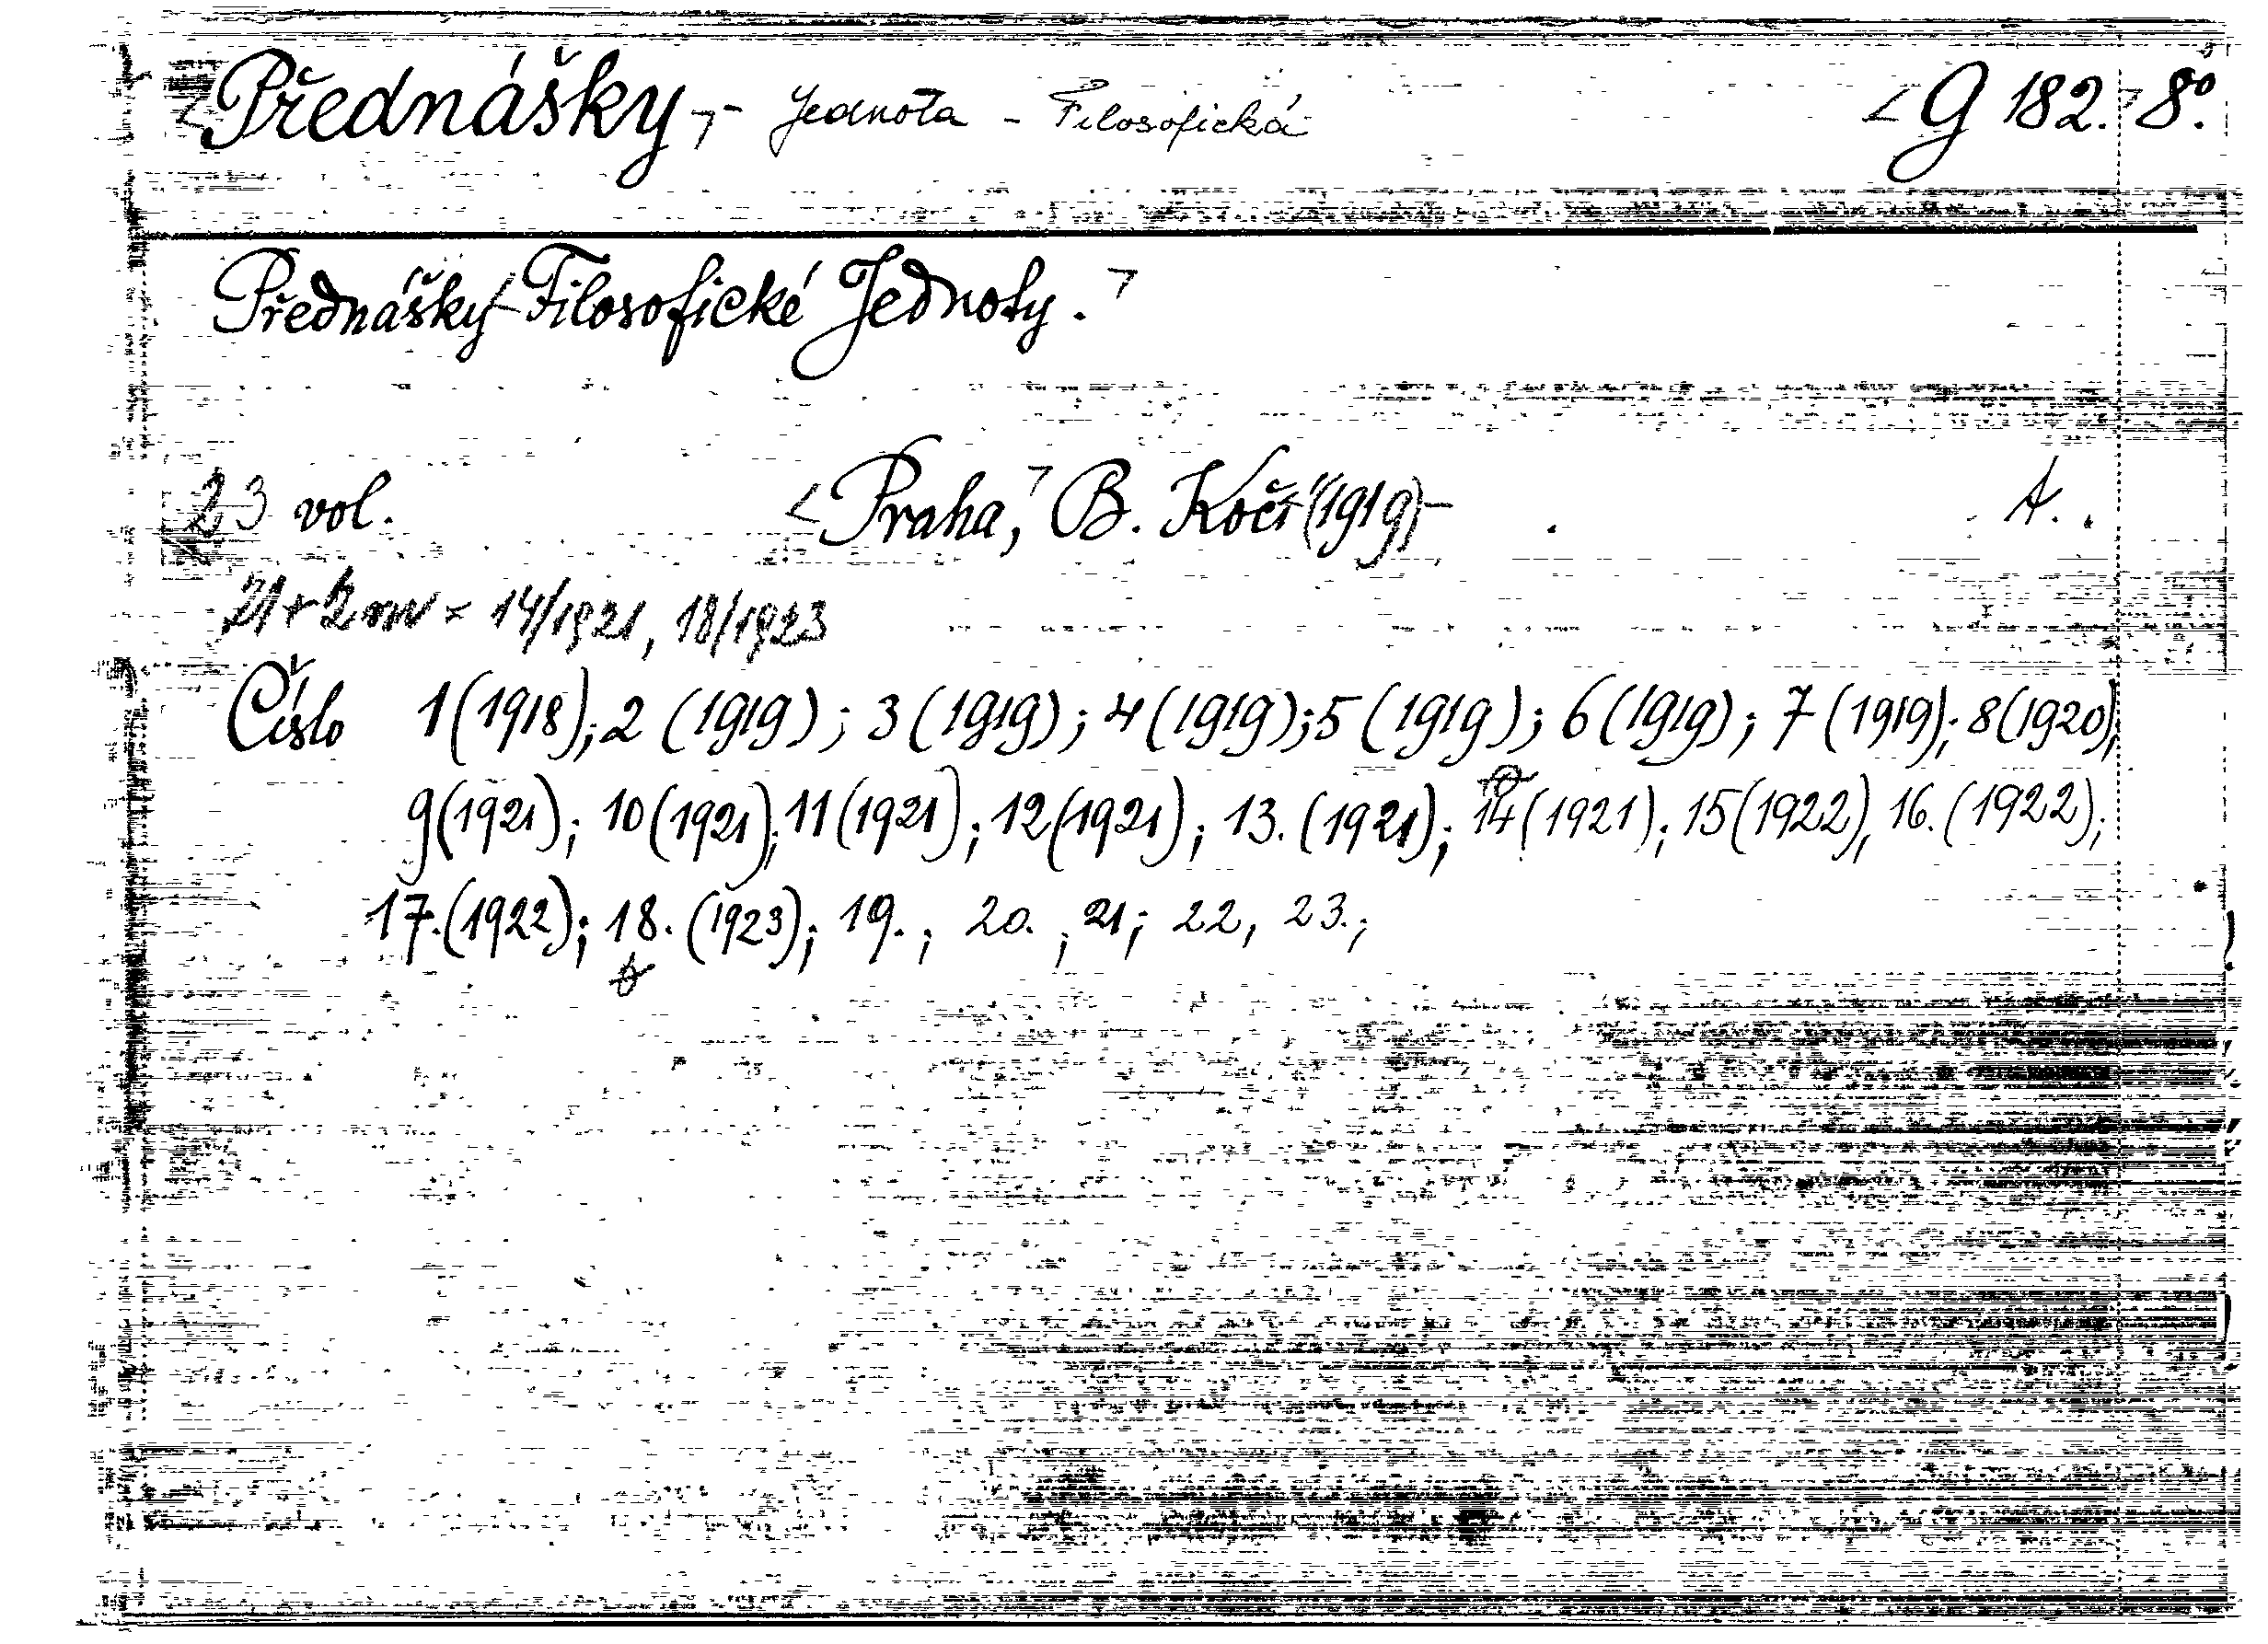 <Přednášky> - Jednota - Filosofická <G 182.> 8°.
Přednášky <Filosofické Jednoty.>
23 vol. <Praha,> B. Kočí (1919)- . A.
21+2 = 14/1921, 18/1923
Číslo 1 (1918); 2 (1919); 3 (1919); 4 (1919); 5 (1919); 6 (1919); 7 (1919); 8 (1920);
9 (1921); 10 (1921); 11 (1921); 12 (1921); 13. (1921); 14 (1921); 15 (1922), 16. (1922);
17. (1922); 18. (1923); 19. ; 20. ; 21; 22, 23.;